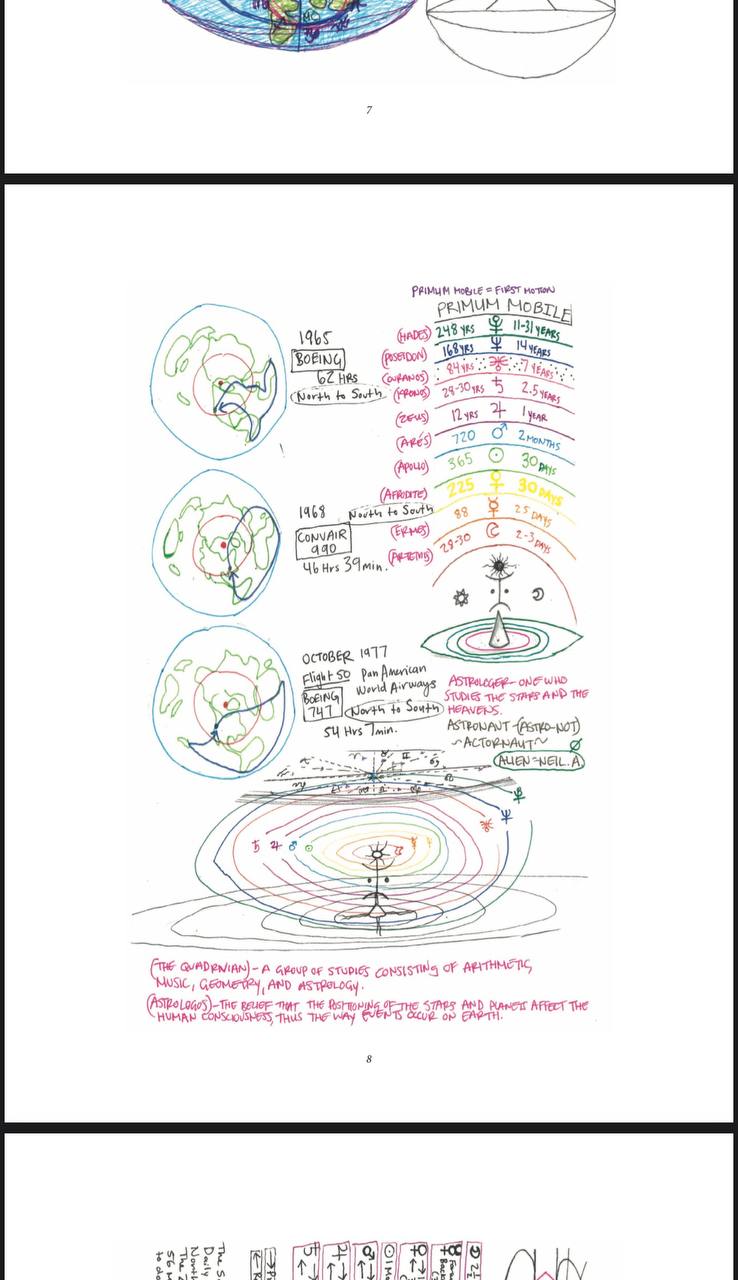 7
PRIMUM MOBILE = FIRST MOTION
PRIMUM MOBILE
(HADES) 248 YRS ♇ 11-31 YEARS
(POSEIDON) 168 YRS ♆ 14 YEARS
(OURANOS) 84 YRS ♅ 7 YEARS
(KRONOS) 28-30 YRS ♄ 2.5 YEARS
(ZEUS) 12 YRS ♃ 1 YEAR
(ARÉS) 720 ♂ 2 MONTHS
(APOLLO) 365 ☉ 30 DAYS
(AFRODITE) 225 ♀ 30 DAYS
(ERMES) 88 ☿ 25 DAYS
(ARTEMIS) 28-30 ☾ 2-3 DAYS
1965
BOEING
62 HRS
North to South
1968 North to South
CONVAIR
990
46 Hrs 39 min.
OCTOBER 1977
Flight 50 Pan American
World Airways
BOEING
747
North to South
54 Hrs 7 min.
ASTROLOGER - ONE WHO
STUDIES THE STARS AND THE
HEAVENS.
ASTRONAUT - (ASTRO-NOT)
~ACTORNAUT~
ALIEN = NEIL.A
♇
♆
♅
♄ ♃ ♂ ☉
(THE QUADRNIAN) - A GROUP OF STUDIES CONSISTING OF ARITHMETIC,
MUSIC, GEOMETRY, AND ASTROLOGY.
(ASTROLOGOS) - THE BELIEF THAT THE POSITIONING OF THE STARS AND PLANETS AFFECT THE
HUMAN CONSCIOUSNESS, THUS THE WAY EVENTS OCCUR ON EARTH.
8
The S
Daily
North
The
56 M
to do